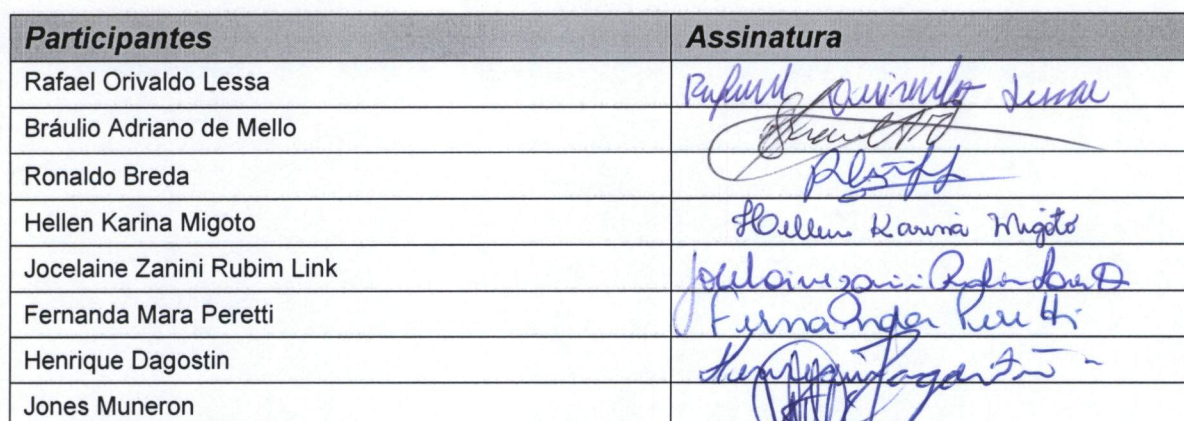 Participantes Assinatura
Rafael Orivaldo Lessa Rafael Orivaldo Lessa
Bráulio Adriano de Mello
Ronaldo Breda
Hellen Karina Migoto Hellen Karina Migoto
Jocelaine Zanini Rubim Link
Fernanda Mara Peretti Fernanda Peretti
Henrique Dagostin Henrique Dagostin
Jones Muneron